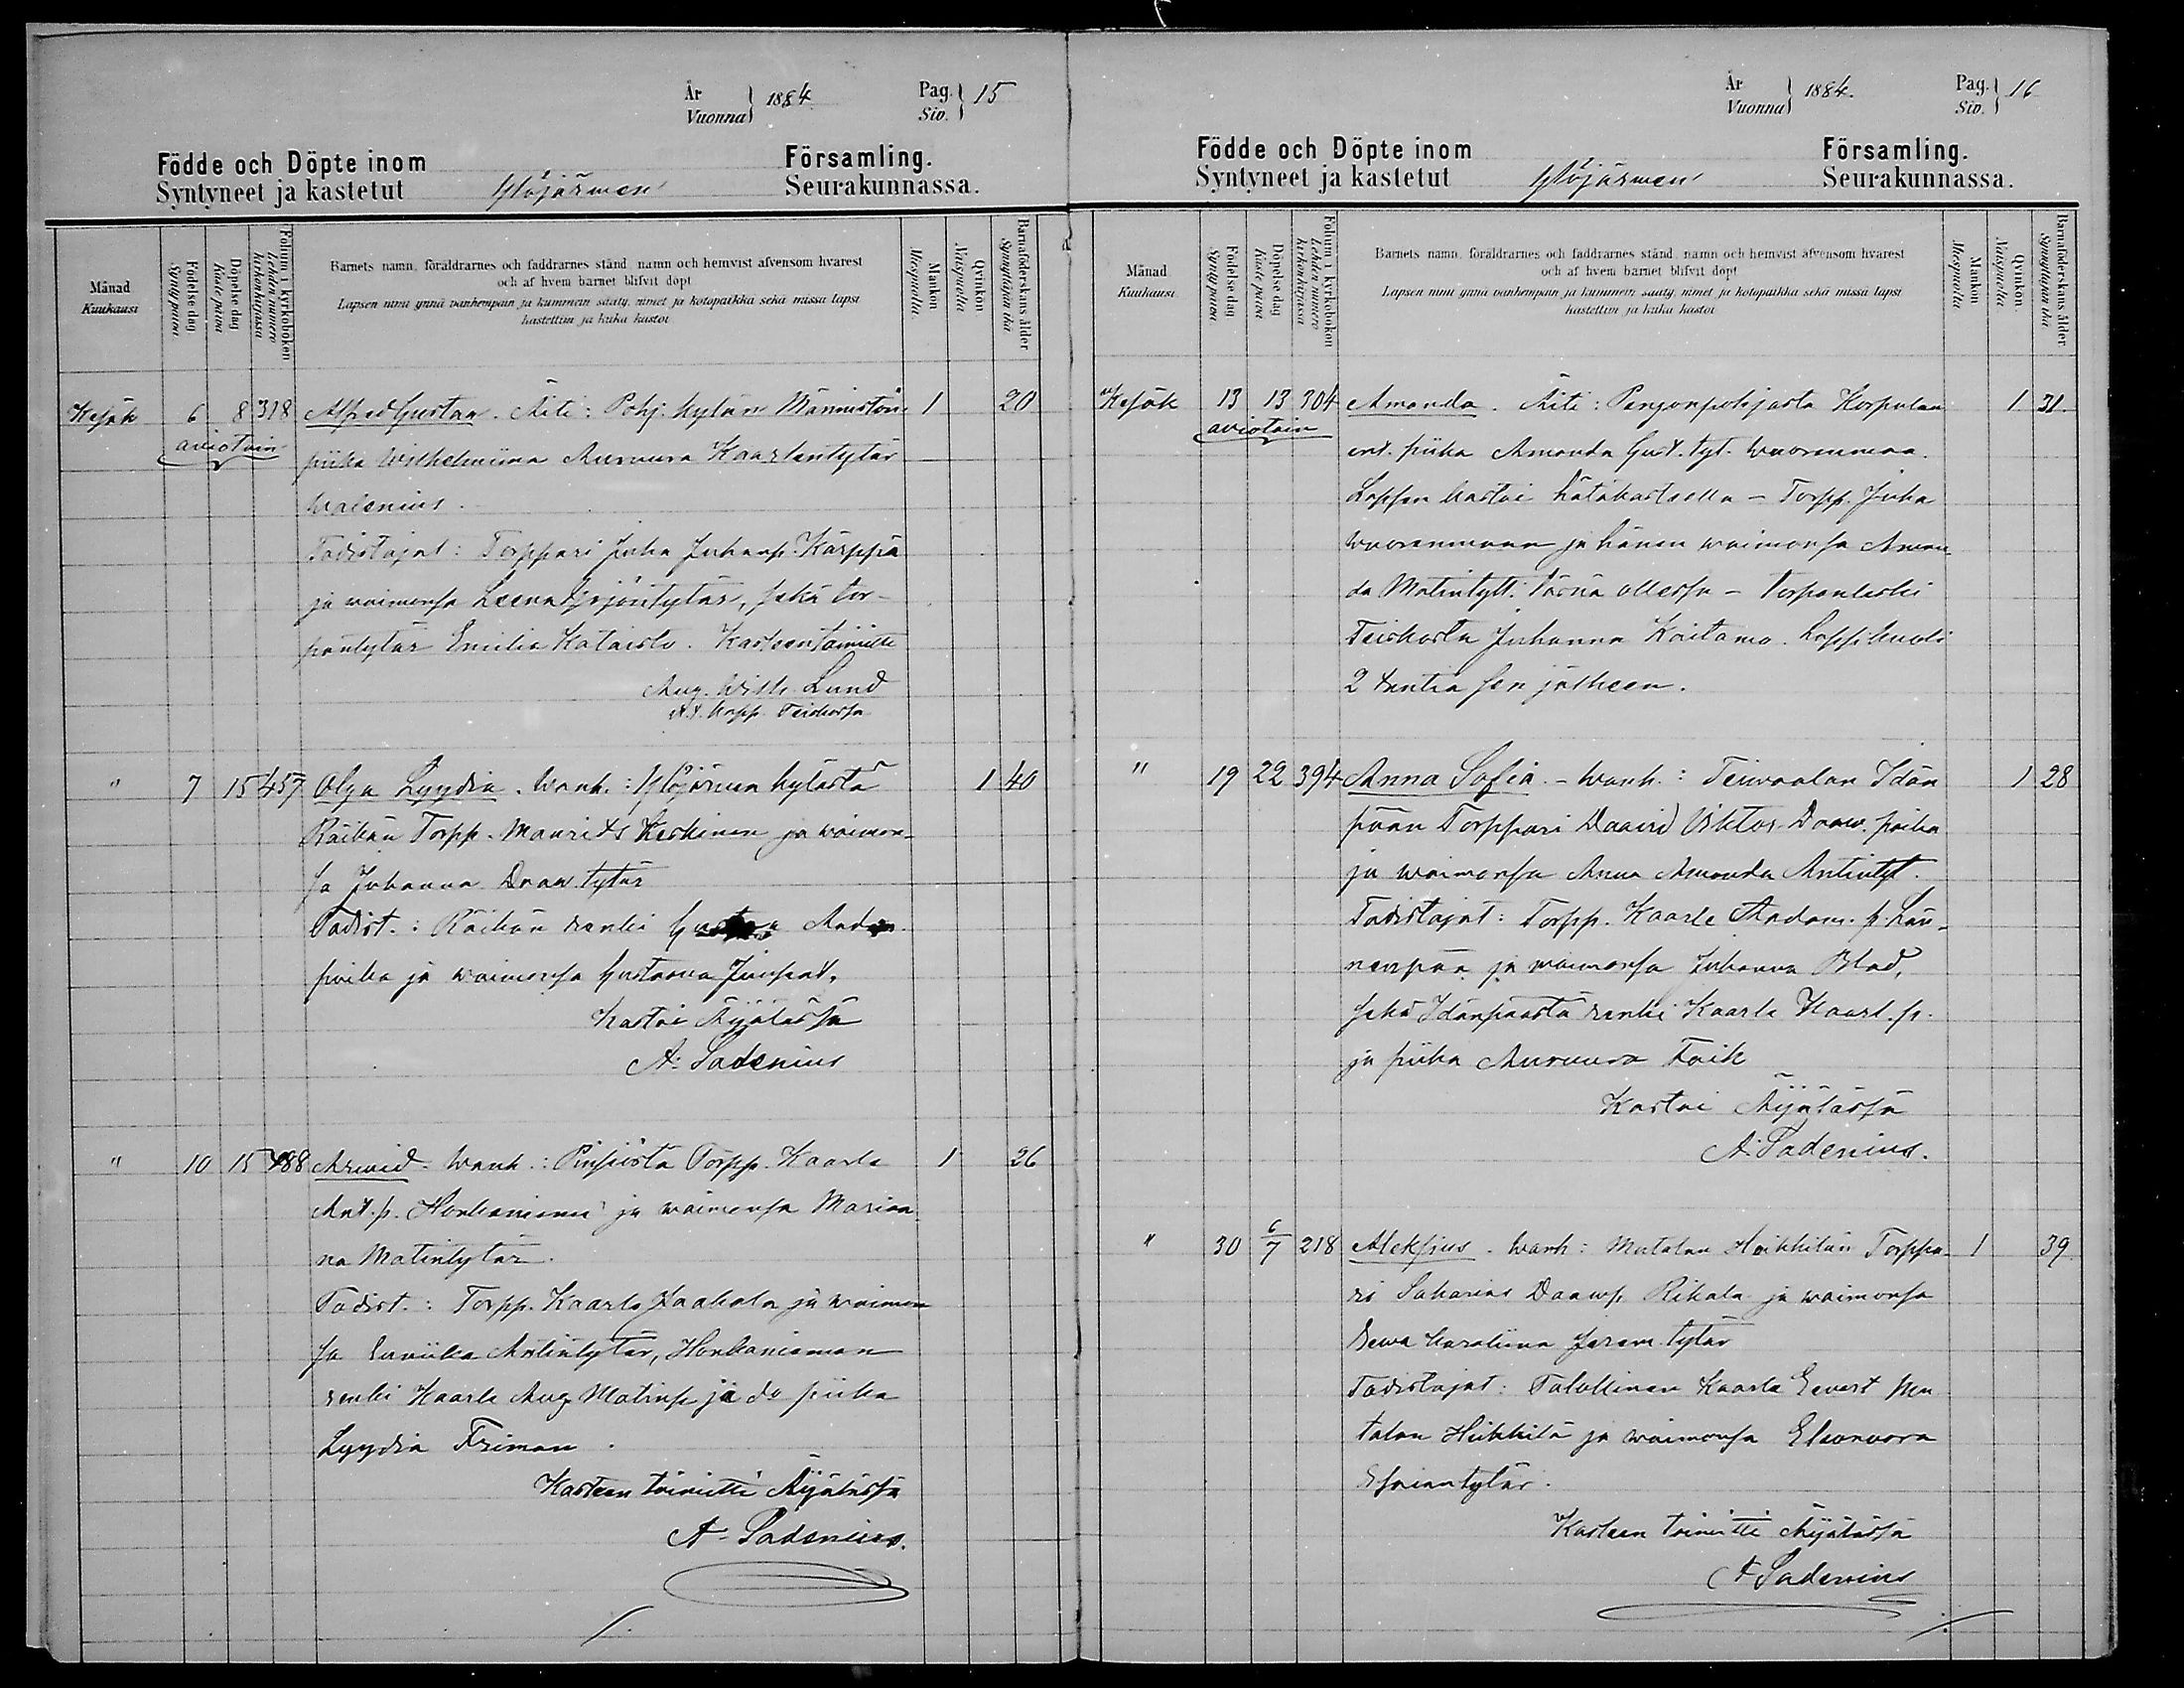 År
Vuonna } 1884
Pag.
Siv. } 15
Födde och Döpte inom Församling.
Syntyneet ja kastetut Ylöjärwen Seurakunnassa.
Månad
Kuukausi
Födelse dag
Synty päivä
Döpelse dag
Kaste päivä
Folium i kyrkoboken
Lehden numero kirkonkirjassa
Barnets namn, föräldrarnes och faddrarnes stånd, namn och hemvist äfvensom hvarest
och af hvem barnet blifvit döpt
Lapsen nimi ynnä vanhempain ja kummein sääty, nimet ja kotopaikka sekä missä lapsi
kastettiin ja kuka kastoi
Mankön
Miespuolia
Qvinkön
Naispuolia
Barnaföderskans ålder
Synnyttäjän ikä
Kesäk 6 8 318 Alfred Gustav. Äiti: Pohj. kylän Männistön 1 20
aviotoin
piika Wilhelmiina Auruura Kaarlentytär
Walenius.
Todistajat: Torppari Juha Juhanp. Kärppä
ja waimonsa Leena Yrjöntytär, sekä tor-
pantytär Emilia Kataisto. Kasteen toimitti
Aug. Wilh. Lund
v.t. kapp. Teiskossa
" 7 15 457 Olga Lyydia. Wanh.: Ylöjärwen kylästä 1 40
Räikän Torpp. Maurits Keskinen ja waimon-
sa Johanna Daaw. tytär
Todist.: Räikän renki Andr.
poika ja waimonsa Gustaava
Kastoi Äijälässä
A. Sadenius
" 10 15 488 Arwid. Wanh.: Pinsiöstä Torpp. Kaarle 1 26
Ant. p. Honkaniemi ja waimonsa Marian-
na Matintytär.
Todist.: Torpp. Kaarle Jaakola ja waimon
sa Eeriika Antintytär, Honkaniemen
renki Kaarle Aug. Matinp. ja do piika
Lyydia Friman.
Kasteen toimitti Äijälässä
A. Sadenius.
År
Vuonna } 1884.
Pag.
Siv. } 16
Födde och Döpte inom Församling.
Syntyneet ja kastetut Ylöjärwen Seurakunnassa.
Månad
Kuukausi
Födelse dag
Synty päivä
Döpelse dag
Kaste päivä
Folium i kyrkoboken
Lehden numero kirkonkirjassa
Barnets namn, föräldrarnes och faddrarnes stånd, namn och hemvist äfvensom hvarest
och af hvem barnet blifvit döpt
Lapsen nimi ynnä vanhempain ja kummein sääty, nimet ja kotopaikka sekä missä lapsi
kastettiin ja kuka kastoi
Mankön
Miespuolia
Qvinkön.
Naispuolia
Barnaföderskans ålder.
Synnyttäjän ikä
Kesäk 13 13 304 Amanda. Äiti: Pengonpohjasta Korpulan 1 31.
aviotoin
ent. piika Amanda Gust. tyt. Wuorenmaa.
Lapsen kastoi hätäkasteella – Torpp. Juha
Wuorenmaan ja hänen waimonsa Aman-
da Matintytt. läsnä ollessa – Torpanleski
Teiskosta Johanna Koitamo. Lapsi kuoli
2 tuntia sen jälkeen.
" 19 22 394 Anna Sofia. – Wanh.: Teiwaalan Idän 1 28
pään Torppari Daavid Viktor Daaw. poika
ja waimonsa Anna Amanda Antintyt.
Todistajat: Torpp. Kaarle Anders. p. Län-
nenpää ja waimonsa Johanna Blad,
sekä Idänpäästä renki Kaarle Kaarl. p.
ja piika Auruura Foik
Kastoi Äijälässä
A. Sadenius.
" 30 6/7 218 Aleksius. Wanh: Mutalan Heikkilän Torppa- 1 39
ri Sakarias Daawp. Rikala ja waimonsa
Eewa Karoliina Jerem. tytär
Todistajat: Talollinen Kaarle Evert Mu
talan Heikkilä ja waimonsa Eleonoora
Esaiantytär.
Kasteen toimitti Äijälässä
A. Sadenius